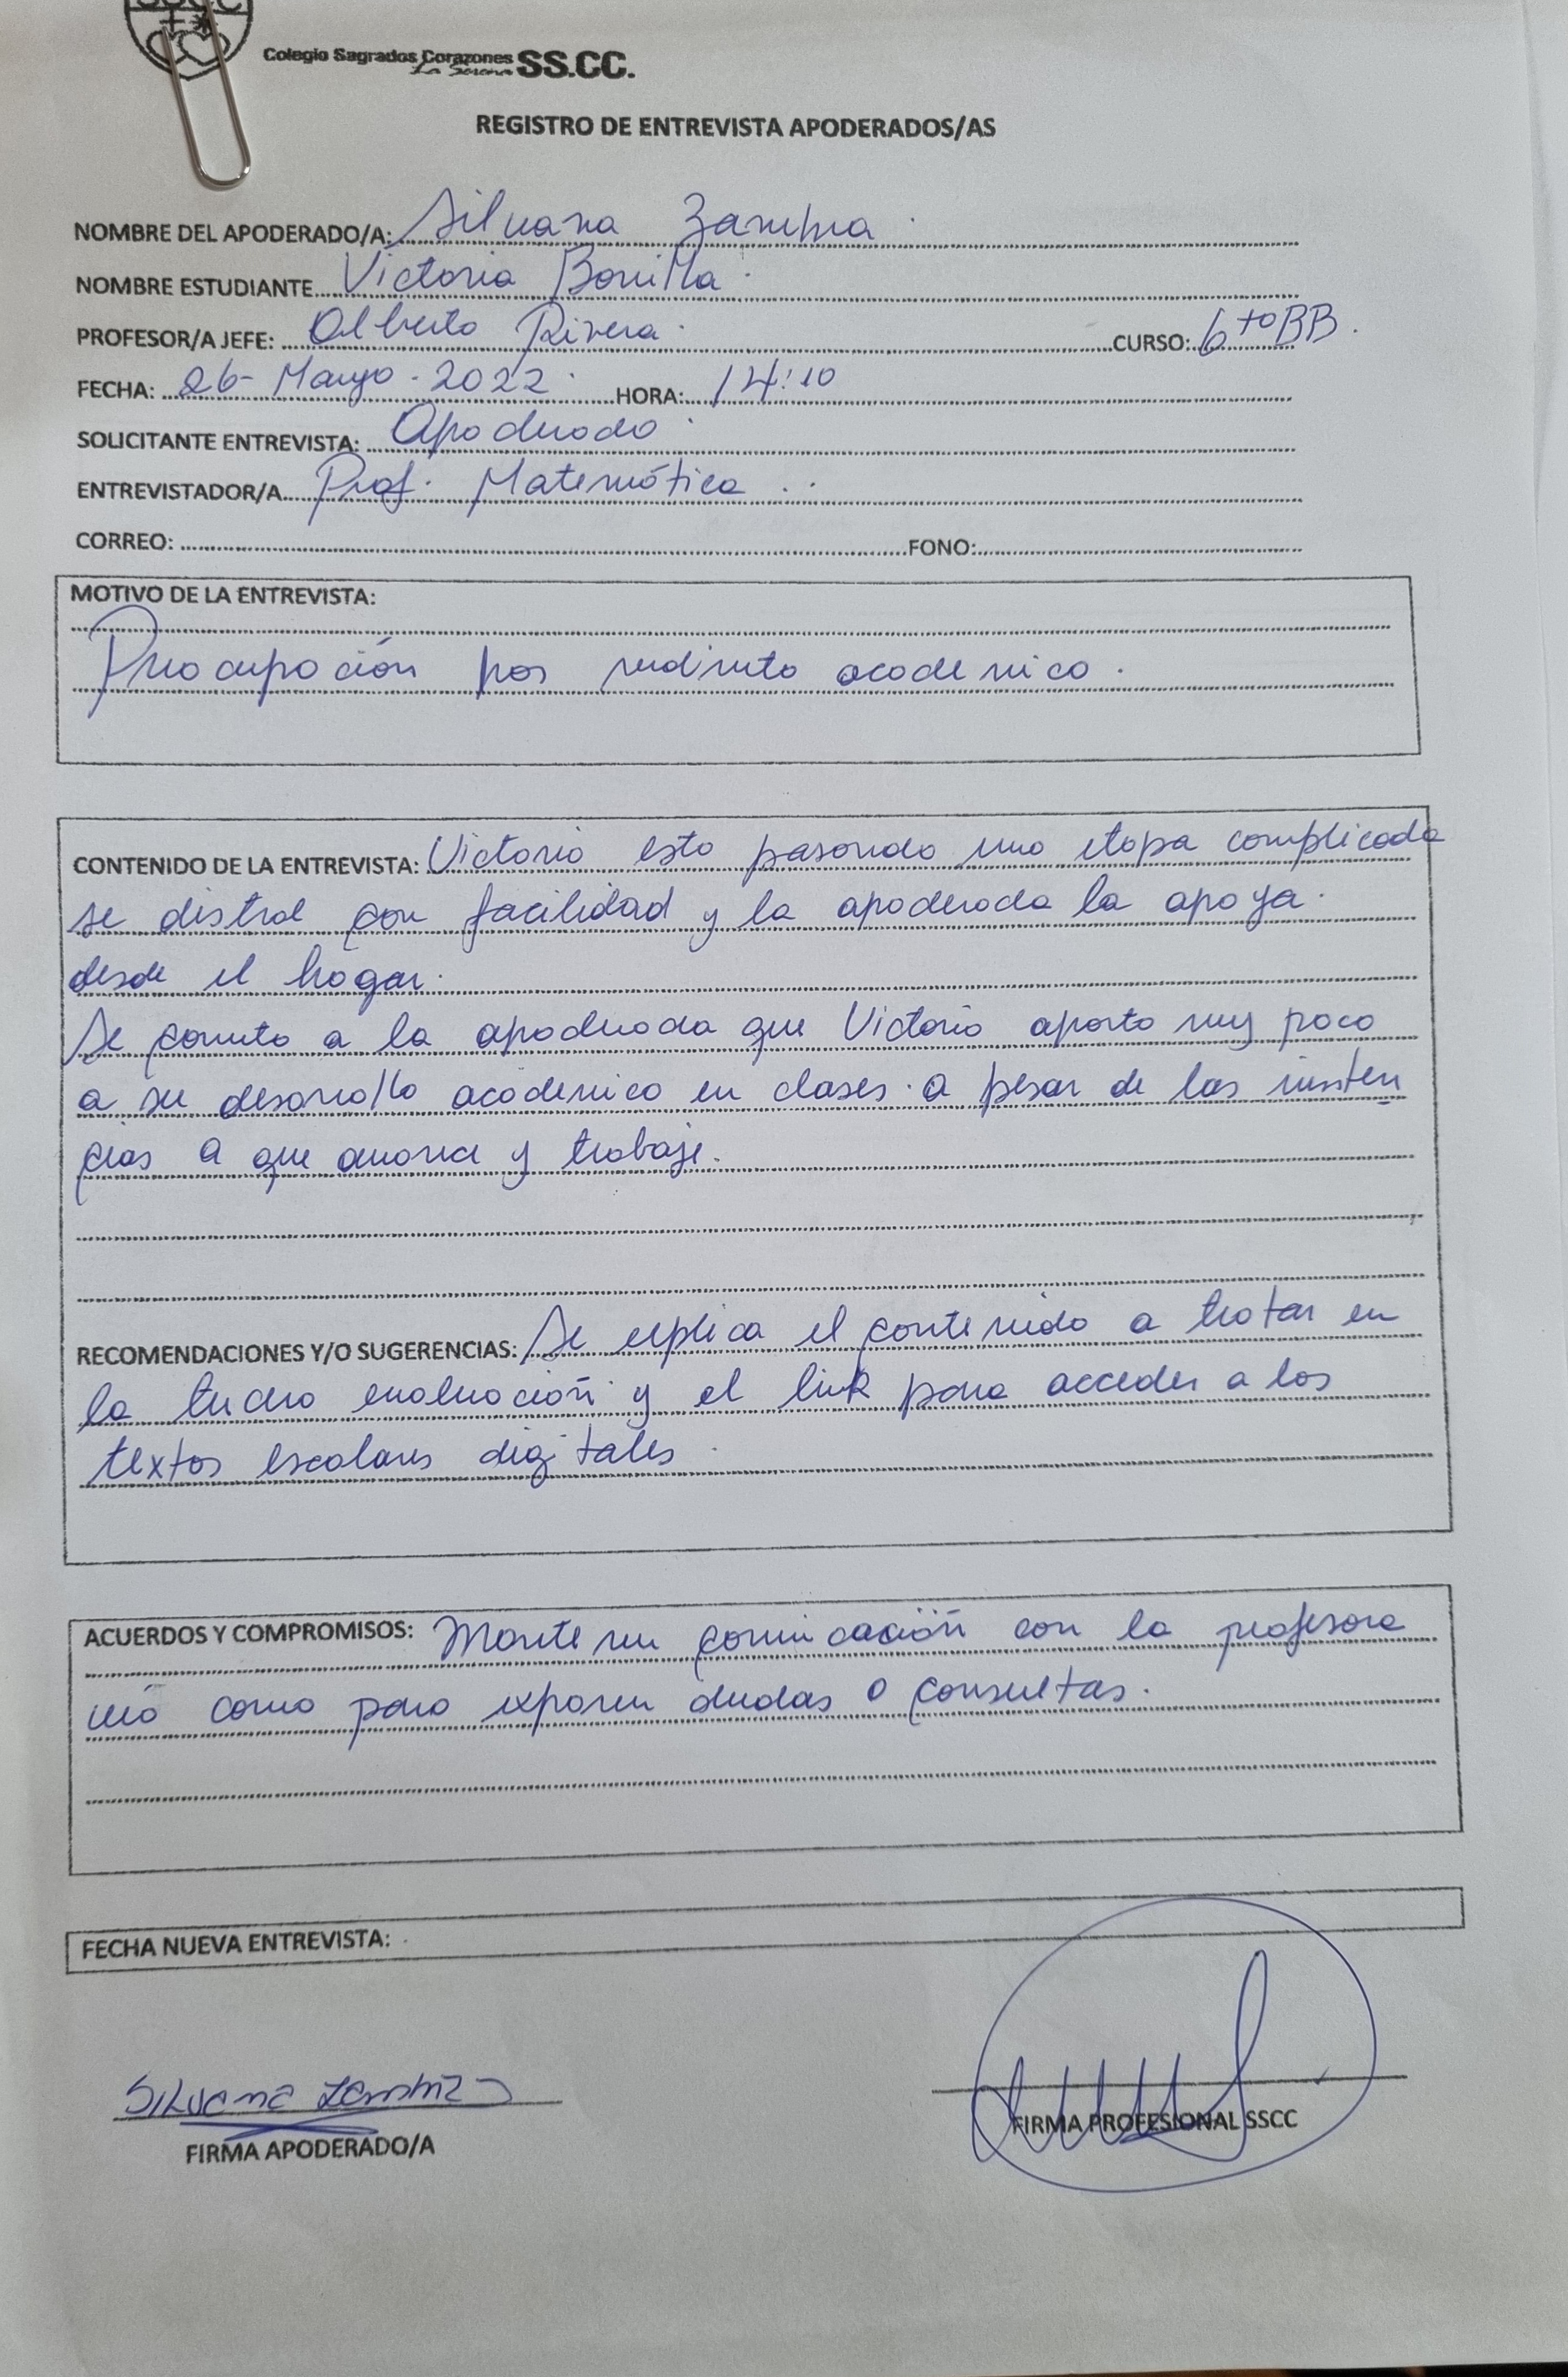 Colegio Sagrados Corazones SS.CC.
La Serena
REGISTRO DE ENTREVISTA APODERADOS/AS
NOMBRE DEL APODERADO/A: Silvana Zambra
NOMBRE ESTUDIANTE Victoria Bonilla
PROFESOR/A JEFE: Alberto Rivera CURSO: 6to BB.
FECHA: 26- Mayo - 2022 HORA: 14:10
SOLICITANTE ENTREVISTA: Apoderado
ENTREVISTADOR/A Prof. Matemática
CORREO: FONO:
MOTIVO DE LA ENTREVISTA:
Preocupación por academico.
CONTENIDO DE LA ENTREVISTA: Victoria esta pasando una etapa complicada
se distrae con facilidad y la apoderada la apoya.
desde el hogar.
Se a la apoderada que Victoria aporta muy poco
a su desarrollo academico en clases. a pesar de las
cias a que y trabaje.
RECOMENDACIONES Y/O SUGERENCIAS: Se explica el contenido a tratar en
la evaluación y el link para acceder a los
textos escolares digitales
ACUERDOS Y COMPROMISOS: Mantener con la profesora
como para exponer dudas o consultas.
FECHA NUEVA ENTREVISTA:
Silvana Zambra
FIRMA APODERADO/A
FIRMA PROFESIONAL SSCC